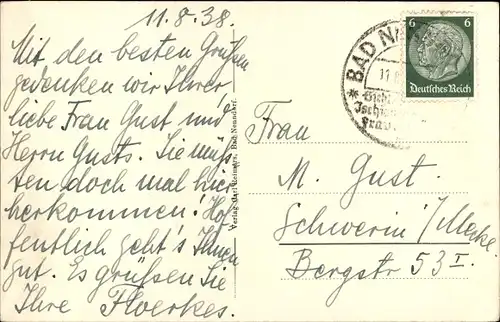 11.8.38.
Mit den besten Grüßen
gedenken wir Ihrer
liebe Frau Gust und
Herrn Gusts. Sie müß-
ten doch mal hier
herkommen! Hof-
fentlich geht's Ihnen
gut. Es grüßen Sie
Ihre Floerkes.
Verlag Carl Bad Nenndorf.
BAD N
11.8
6 6
Deutsches Reich
Frau
M. Gust.
Schwerin i/Meckl.
Bergstr 53 I.